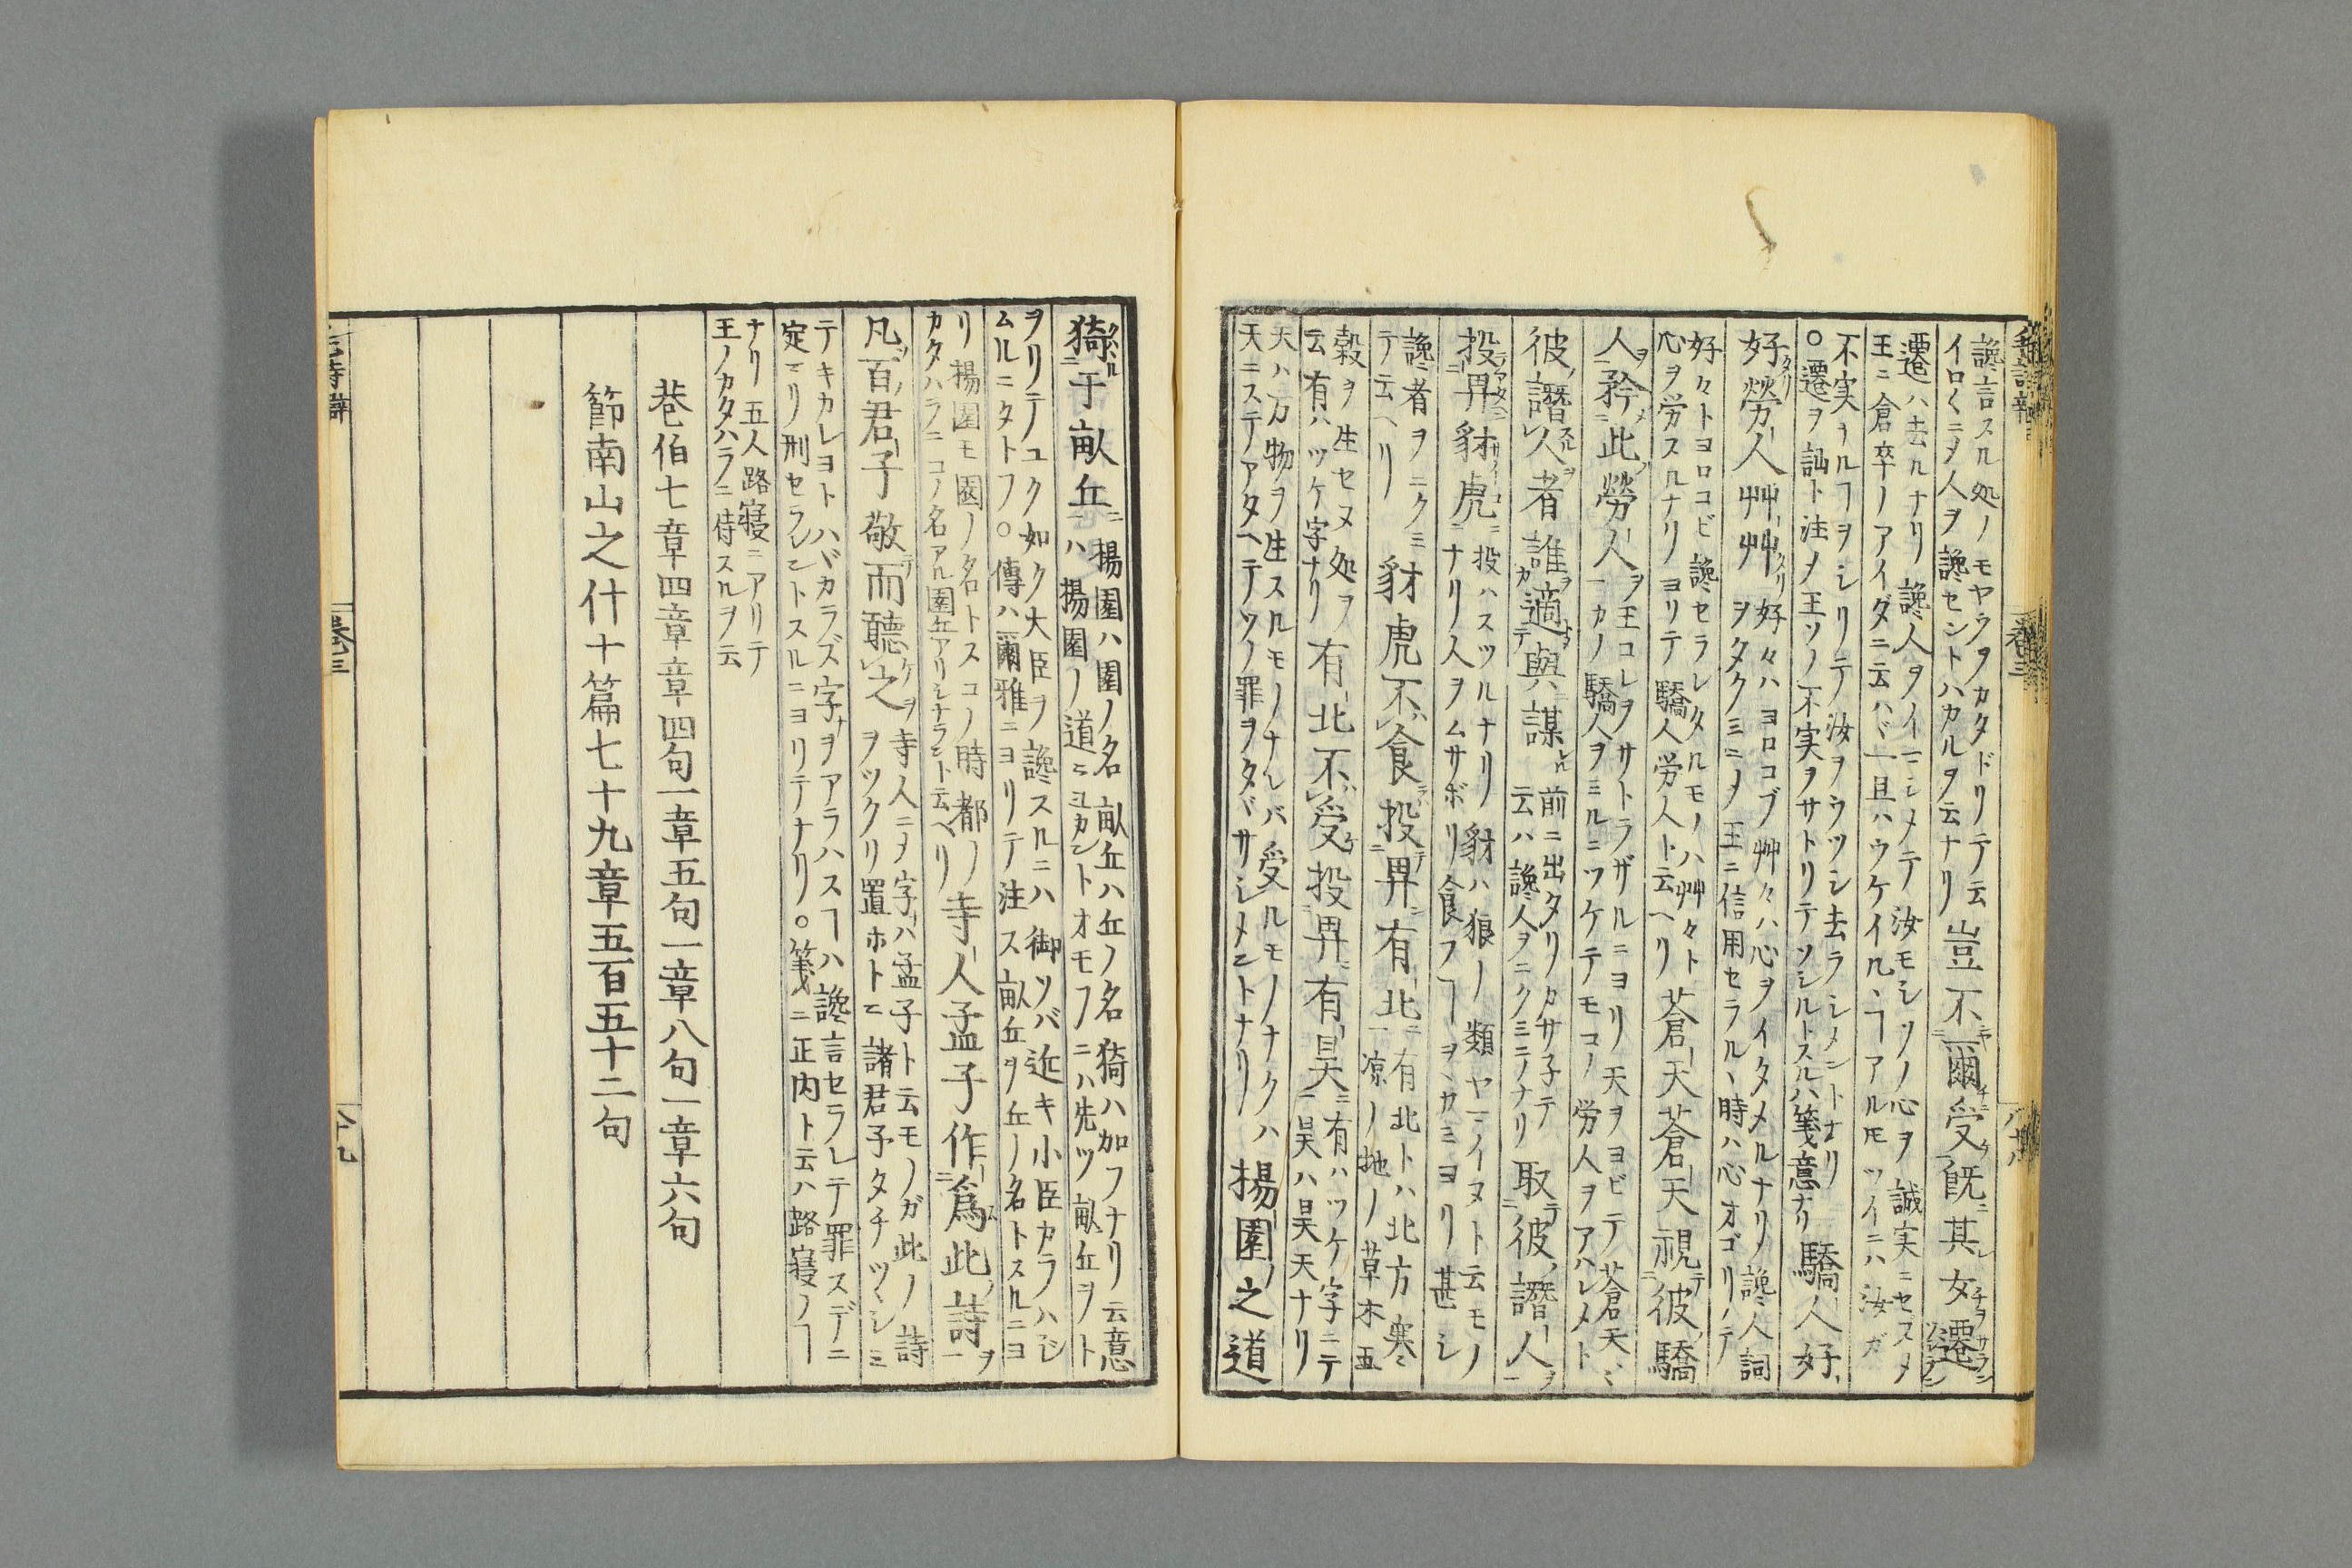 讒言スル処ノモヤウヲカタドリテ云
イロ〱ニメ人ヲ讒セントハカルヲ云ナリ
豈不爾受既其女遷
遷ハ去ルナリ讒人ヲイマシメテ汝モシソノ心ヲ誠実ニセスメ
王ニ倉卒ノアイダニ云ハヾ一旦ハウケイルヽヿアルモツイニハ汝ガ
不実ナルヿヲシリテ汝ヲウツシ去ラシメントナリ
○遷ヲ訕ト注メ王ソノ不実ヲサトリテソシルトスルハ箋意ナリ
驕人好
好勞人艸艸
好々ハヨロコブ艸々ハ心ヲイタメルナリ讒人詞
ヲタクミニメ王ニ信用セラルヽ時ハ心オゴリテ
好々トヨロコビ讒セラレタルモノハ艸々ト
心ヲ労スルナリヨリテ驕人労人ト云ヘリ
蒼天蒼天視彼驕
人矜此勞人
王コレヲサトラザルニヨリ天ヲヨビテ蒼天ヽヽ
カノ驕人ヲミルニツケテモコノ労人ヲアハレメト
彼譖人者誰適與謀
前ニ出タリカサ子テ
云ハ讒人ヲニクミテナリ
取彼譖人
投畀豺虎
投ハスツルナリ豺ハ狼ノ類ヤマイヌト云モノ
ナリ人ヲムサボリ食フヿヲヽカミヨリ甚シ
讒者ヲニクミ
テ云ヘリ
豺虎不食投畀有北
有北トハ北方寒
凉ノ地ノ草木五
穀ヲ生セヌ処ヲ
云有ハツケ字ナリ
有北不受投畀有昊
有ハツケ字ニテ
昊ハ昊天ナリ
天ハ万物ヲ生スルモノナレバ受ルモノナクハ
天ニステアタヘテソノ罪ヲタヾサシメントナリ
揚園之道
猗于畝丘
揚園ハ園ノ名畝丘ハ丘ノ名猗ハ加フナリ云意
ハ揚園ノ道ニユカントオモフニハ先ツ畝丘ヲト
ヲリテユク如ク大臣ヲ讒スルニハ御ソバ近キ小臣カラハシ
ムルニタトフ○傳ハ爾雅ニヨリテ注ス畝丘ヲ丘ノ名トスルニヨ
リ揚園モ園ノ名トスコノ時都ノ
カタハラニコノ名アル園丘アリシナラント云ヘリ
寺人孟子作爲此詩
凡百君子敬而聽之
寺人ニメ字ハ孟子ト云モノガ此ノ詩
ヲツクリ置ホトニ諸君子タチツヽシミ
テキカレヨトハヾカラズ字ヲアラハスヿハ讒言セラレテ罪スデニ
定マリ刑セラレントスルニヨリテナリ○箋ニ正内ト云ハ路寝ノヿ
ナリ五人路寝ニアリテ
王ノカタハラニ侍スルヲ云
巷伯七章四章章四句一章五句一章八句一章六句
節南山之什十篇七十九章五百五十二句
卷三